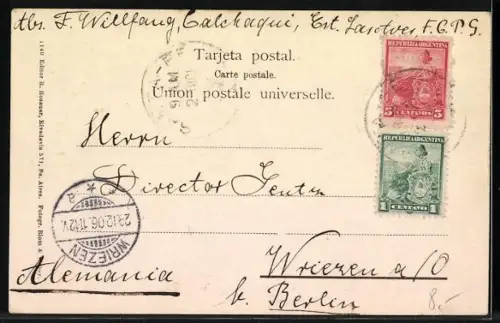 Abs. F. Willfang, Calchaqui, Est. Lasotves, F.C.P.S.
Tarjeta postal.
Carte postale.
Union postale universelle.
REPUBLICA ARGENTINA
5 CENTAVOS 5
REPUBLICA ARGENTINA
1 CENTAVO 1
9 AM
Herrn
Director Jentz
Wriezen a/O
b. Berlin
Alemania
23.12.06.11-12V.
WRIEZEN
1140 Editor R. Rosauer, Rivadavia 571, Bs. Aires.
8.-